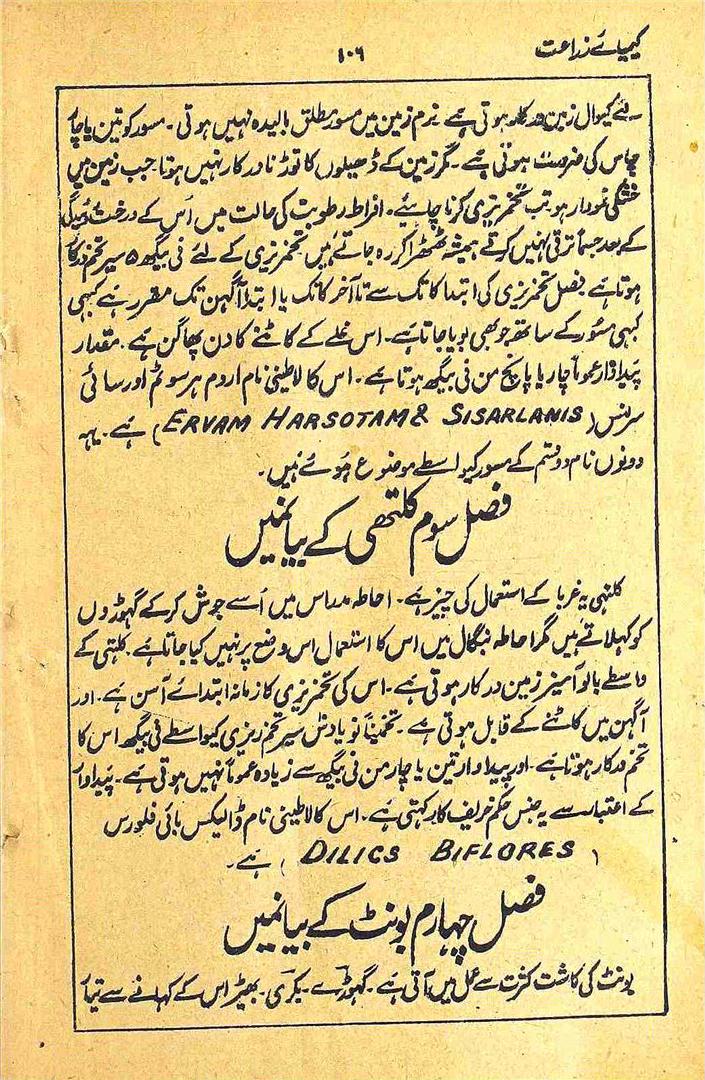 کیمیائے زراعت
۱۰۶
لئے کیوال زمین درکار ہوتی ہے نرم زمین میں مسور مطلق بالیدہ نہیں ہوتی۔ مسور کو تین یا چار
چاس کی ضرورت ہوتی ہے۔ مگر زمین کے ڈھیلوں کا توڑنا درکار نہیں ہوتا۔ جب زمین میں
خشکی نمودار ہو تب تخمریزی کرنا چاہیئے۔ افراط رطوبت کی حالت میں اُس کے درخت روئیدگی
کے بعد جسماً ترقی نہیں کرتے ہمیشہ ٹھٹھرا کر رہ جاتے ہیں۔ تخمریزی کے لئے فی بیگھ ۵ سیر تخم درکار
ہوتا ہے فصل تخمریزی کی ابتدا کاتک سے تا آخر کاتک یا ابتدا آگہن تک مقرر ہے کبہی
کبہی مسور کے ساتھ جو بھی بویا جاتا ہے۔ اس غلے کے کاٹنے کا دن پھاگن ہے۔ مقدار
پیداوار عموماً چار یا پانچ من فی بیگھ ہوتا ہے۔ اس کا لاطینی نام اروم ہرسوٹم اور سائی
سرلنس (ERVAM HARSOTAM & SISARLANIS) ہے۔ یہہ
دونوں نام دو قسم کے مسور کیواسطے موضوع ہوئے ہیں۔
فصل سوم کلتھی کے بیانمیں
کلتہی یہ غربا کے استعمال کی چیز ہے۔ احاطہ مدراس میں اُسے جوش کر کے گہوڑوں
کو کہلاتے ہیں مگر احاطہ بنگال میں اس کا استعمال اس وضع پر نہیں کیا جاتا ہے۔ کلتہی کے
واسطے بالو آمیز زمین درکار ہوتی ہے۔ اس کی تخمریزی کا زمانہ ابتدائے آسن ہے۔ اور
آگہن میں کاٹنے کے قابل ہوتی ہے۔ تخمیناً نو یا دش سیر تخم ریزی کیواسطے فی بیگھ اس کا
تخم درکار ہوتا ہے۔ اور پیداوار تین یا چار من فی بیگھ سے زیادہ عموماً نہیں ہوتی ہے۔ پیداوار
کے اعتبار سے یہ جنس حکم خریف کا رکہتی ہے۔ اس کا لاطینی نام ڈالیکس بائی فلورس
(DILICS BIFLORES) ہے۔
فصل چہارم بونٹ کے بیانمیں
بونٹ کی کاشت کثرت سے عمل میں آتی ہے۔ گہوڑے۔ بکری۔ بھیڑ اس کے کہانے سے تیار